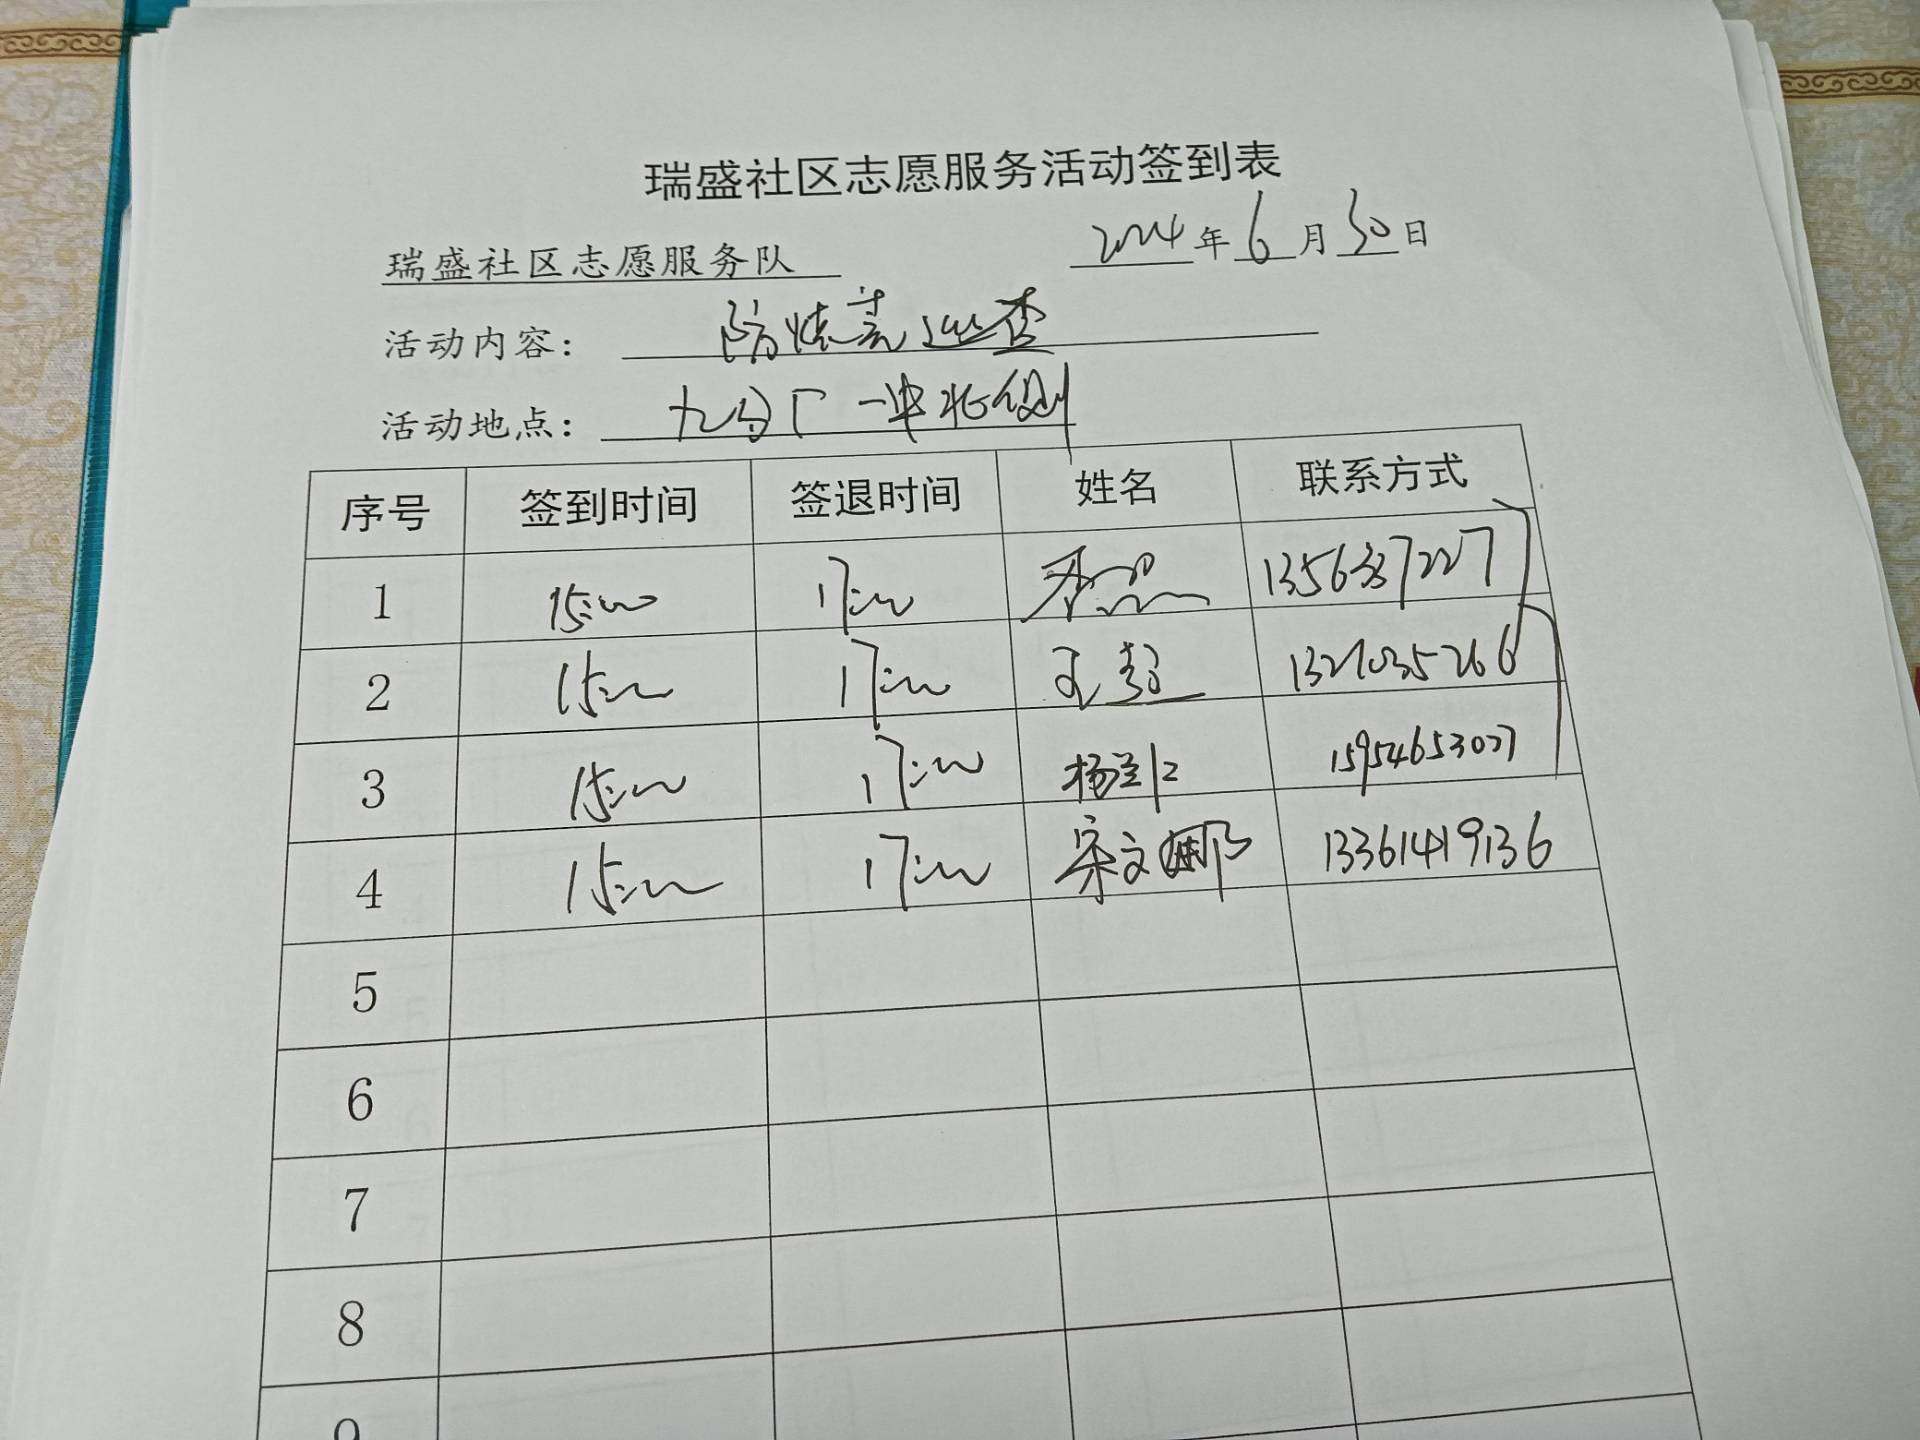 瑞盛社区志愿服务活动签到表
瑞盛社区志愿服务队 2024年6月30日
活动内容： 防焚烧巡查
活动地点： 九分厂一中北侧
序号 签到时间 签退时间 姓名 联系方式
1 15:00 17:00
2 15:00 17:00 王超
3 15:00 17:00 杨兰 15954653077
4 15:00 17:00 宋文娜 13361419136
5
6
7
8
9